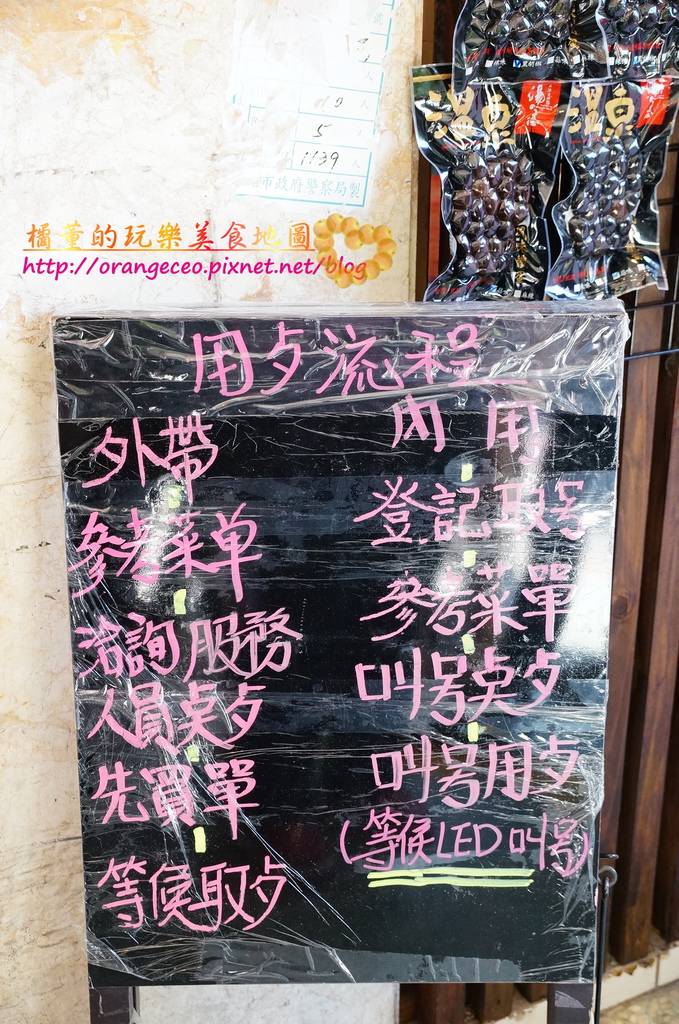 人
10 人
5 人
1139 人
市政府警察局製
橘董的玩樂美食地圖
http://orangeceo.pixnet.net/blog
溫泉
溫泉
用歺流程
外帶
參考菜单
洽詢服務
人員桌歺
先買單
等候取歺
內用
登記取号
參考菜單
叫号桌歺
叫号用歺
(等候LED叫号)